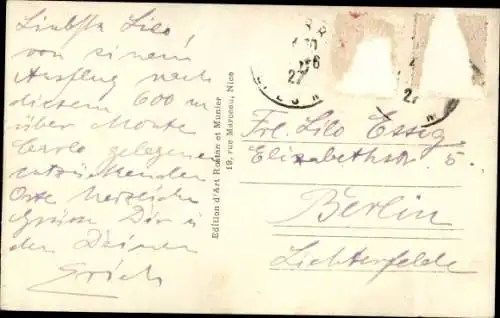 Liebste Lilo,
von einem
Ausflug nach
diesem 600 m
über Monte
Carlo gelegenen
entzückenden
Orte herzliche
Grüsse Dir u
den Deinen
Erich
Edition d'Art Rostan et Munier
19, rue Marceau, Nice
Frl. Lilo Essig
Elisabethstr. 5.
Berlin
Lichterfelde